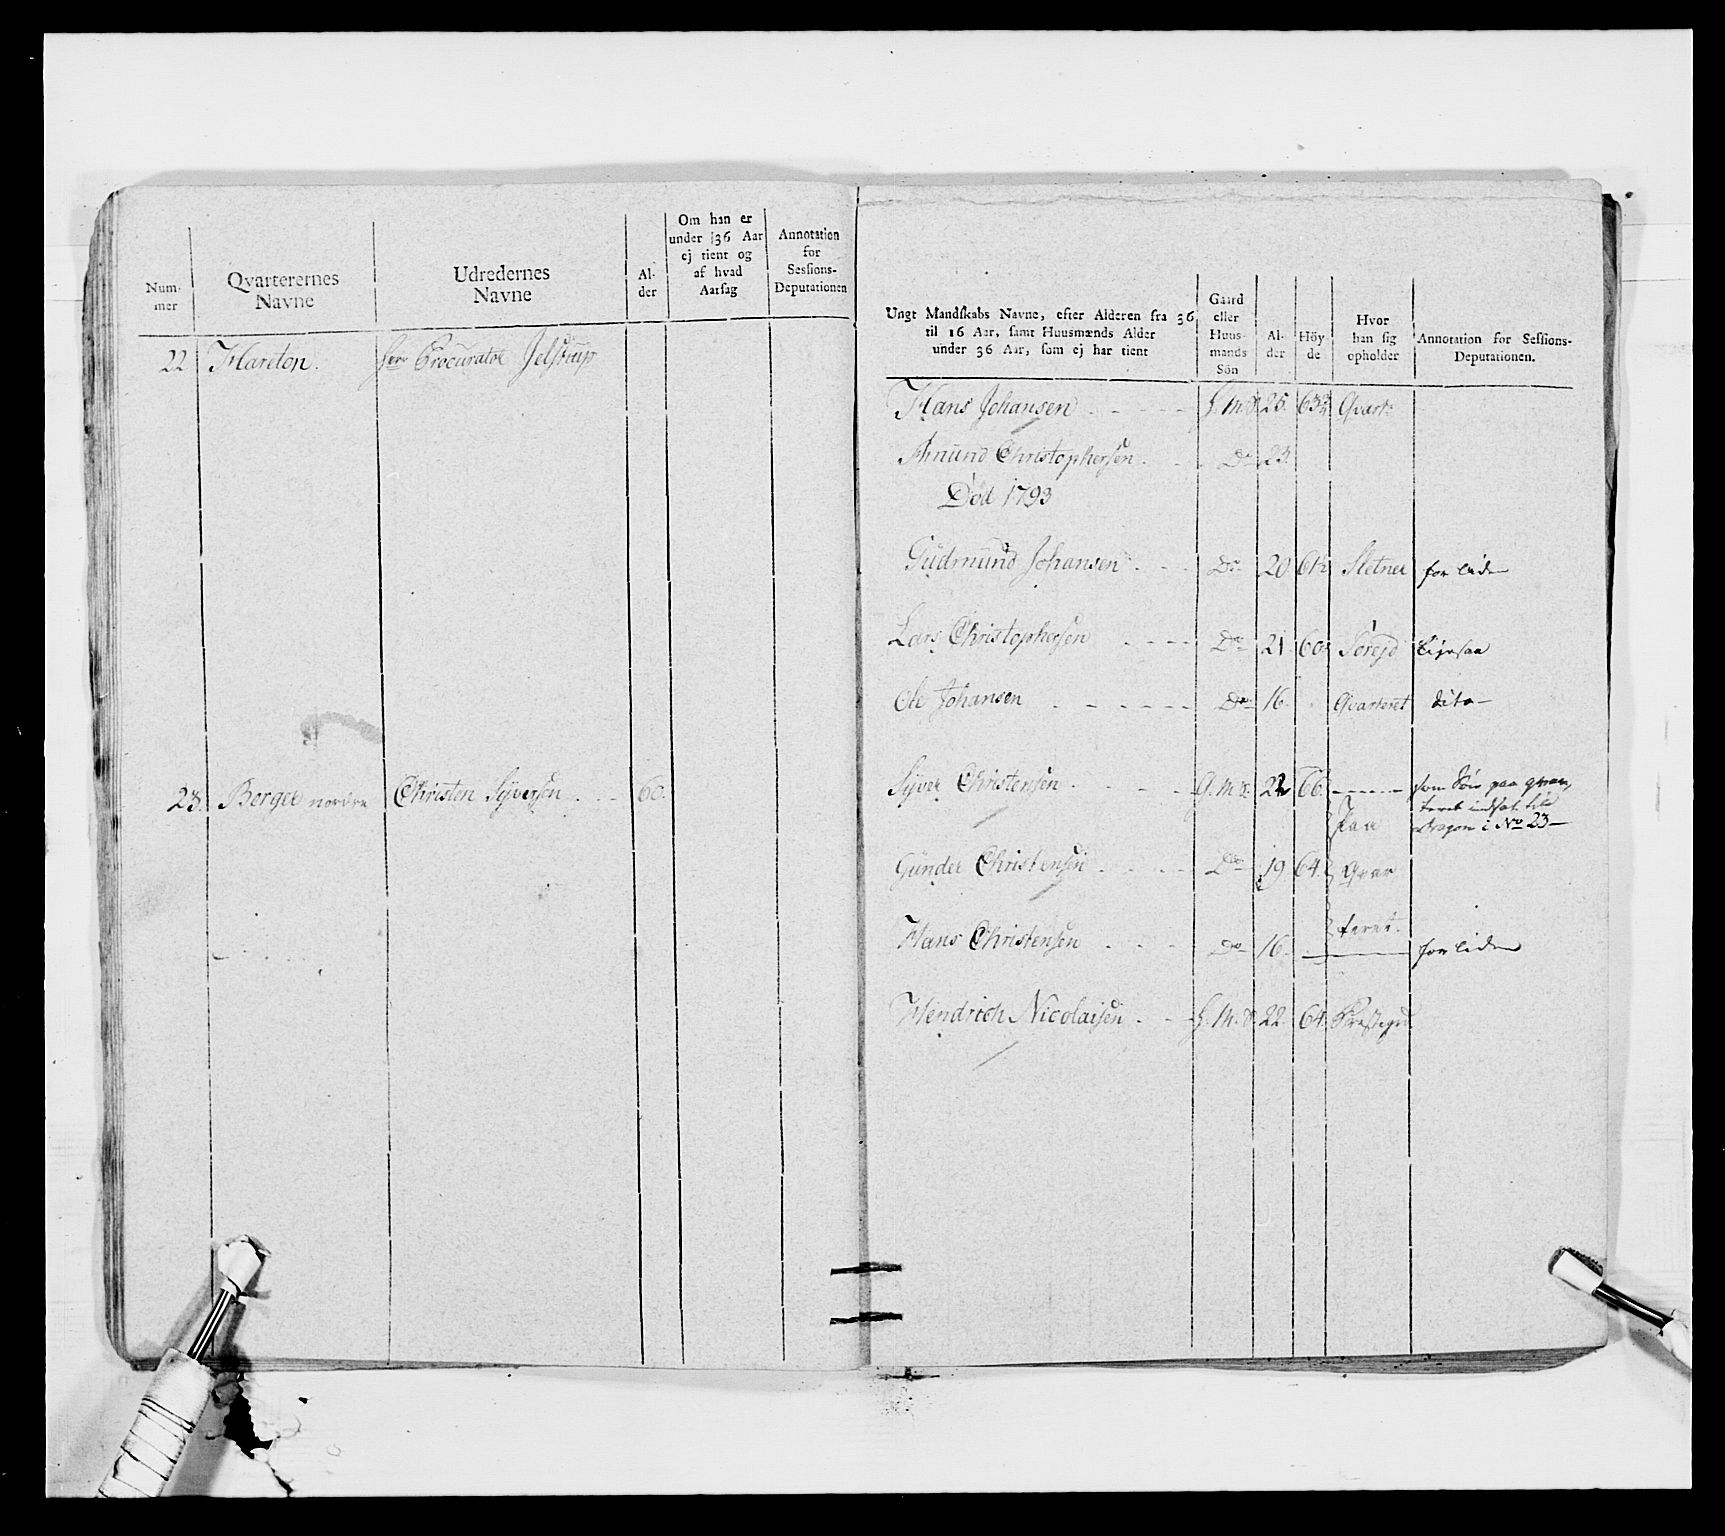 Num-
mer
Qvarterernes
Navne
Udredernes
Navne
Al-
der
Om han er
under 36 Aar
ej tient og
af hvad
Aarsag
Annotation
for
Sessions-
Deputationen
22 Hareton. Hr Procurator Jelstrup
23. Berger nordre Christen Syversen . . . 60.
Ungt Mandskabs Navne, efter Alderen fra 36
til 16 Aar, samt Huusmænds Alder
under 36 Aar, som ej har tient
Gaard
eller
Huus-
mands
Sön
Al-
der
Höy-
de
Hvor
han sig
opholder
Annotation for Sessions-
Deputationen.
Hans Johansen . - - - - H. M. S. 25. 63 3/4 Qvart:
Amund Christophersen . - - Do 23.
Död 1793
Gudmund Johansen . - - Do 20 61 1/2 Sletner for liden
Lars Christophersen - - - - Do 21 60. ligesaa
Ole Johansen - - - - - - Do 16. Qvarteret dito -
Syver Christensen . - - - G. M. S. 22 66. - - - - som Sön paa qvar
teret indsat til
Dragon i No 23 -
Paa
Gunder Christensen . - - - Do 19 64. Qvar
teret.
Hans Christensen . - - - Do 16. - for liden
Hendrich Nicolaisen . - - H. M. S. 22. 64.